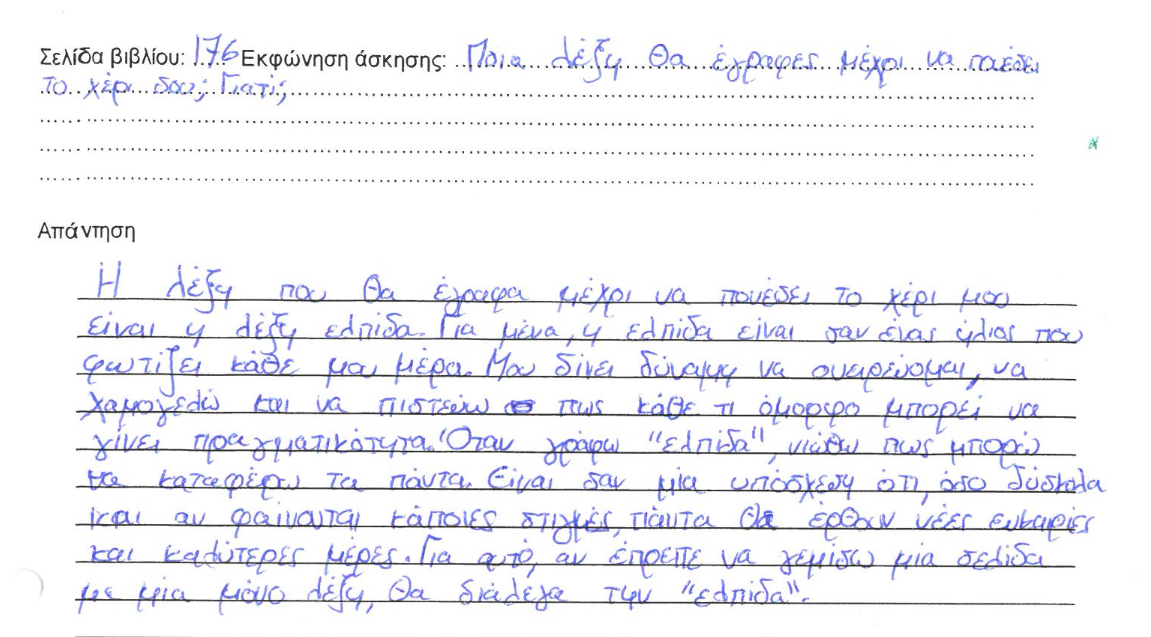 Σελίδα βιβλίου: 176 Εκφώνηση άσκησης: Ποια λέξη θα έγραφες μέχρι να πονέσει
το χέρι σου; Γιατί;
Απάντηση
Η λέξη που θα έγραφα μέχρι να πονέσει το χέρι μου
είναι η λέξη ελπίδα. Για μένα, η ελπίδα είναι σαν ένας ήλιος που
φωτίζει κάθε μου μέρα. Μου δίνει δύναμη να ονειρεύομαι, να
χαμογελώ και να πιστεύω πως κάθε τι όμορφο μπορεί να
γίνει πραγματικότητα. Όταν γράφω "ελπίδα", νιώθω πως μπορώ
να καταφέρω τα πάντα. Είναι σαν μία υπόσχεση ότι, όσο δύσκολα
και αν φαίνονται κάποιες στιγμές, πάντα θα έρθουν νέες ευκαιρίες
και καλύτερες μέρες. Για αυτό, αν έπρεπε να γεμίσω μία σελίδα
με μία μόνο λέξη, θα διάλεγα την "ελπίδα".